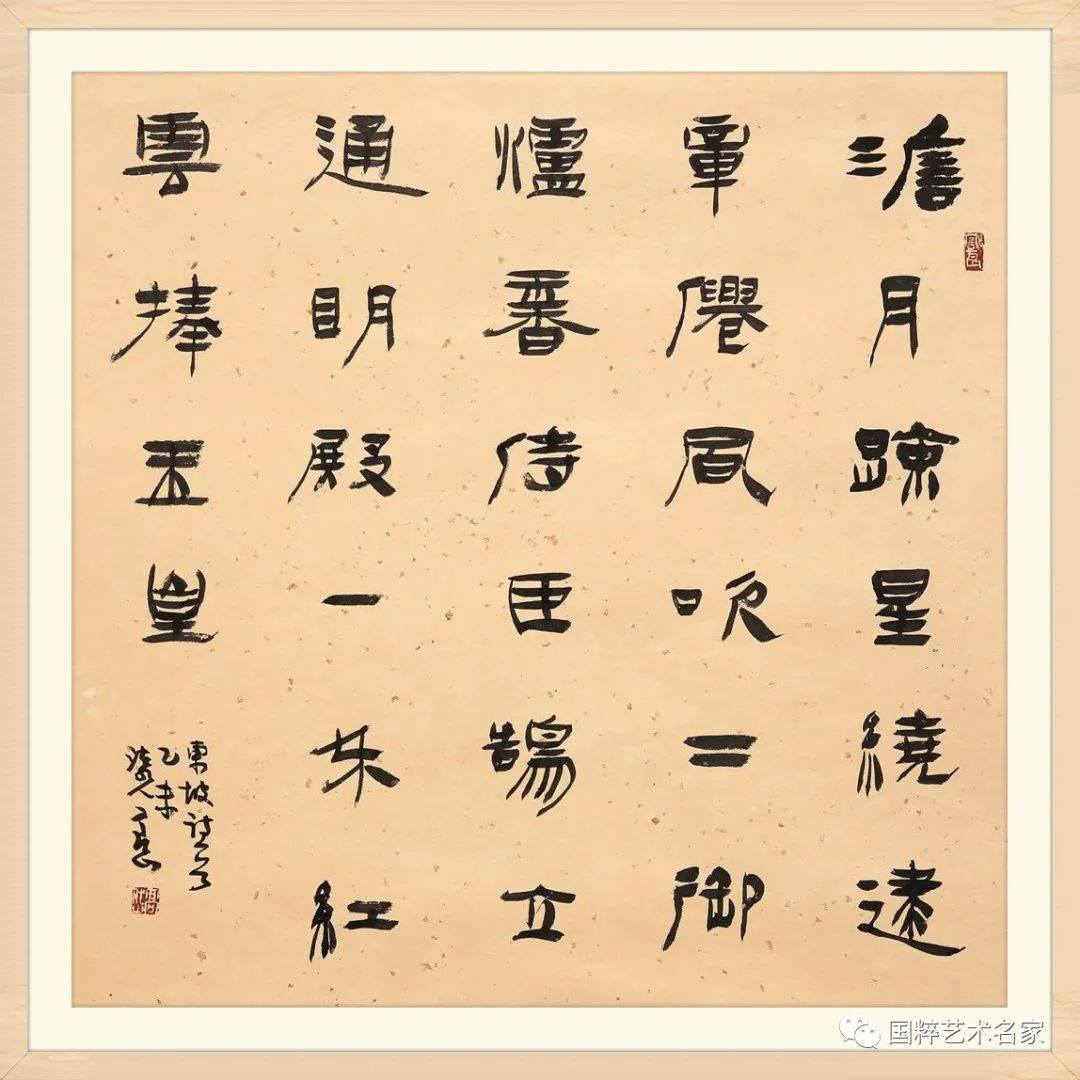 澹月踈星繞建
章僊風吹下御
爐香侍臣鵠立
通明殿一朵紅
雲捧玉皇
東坡詩
乙未
国粹艺术名家